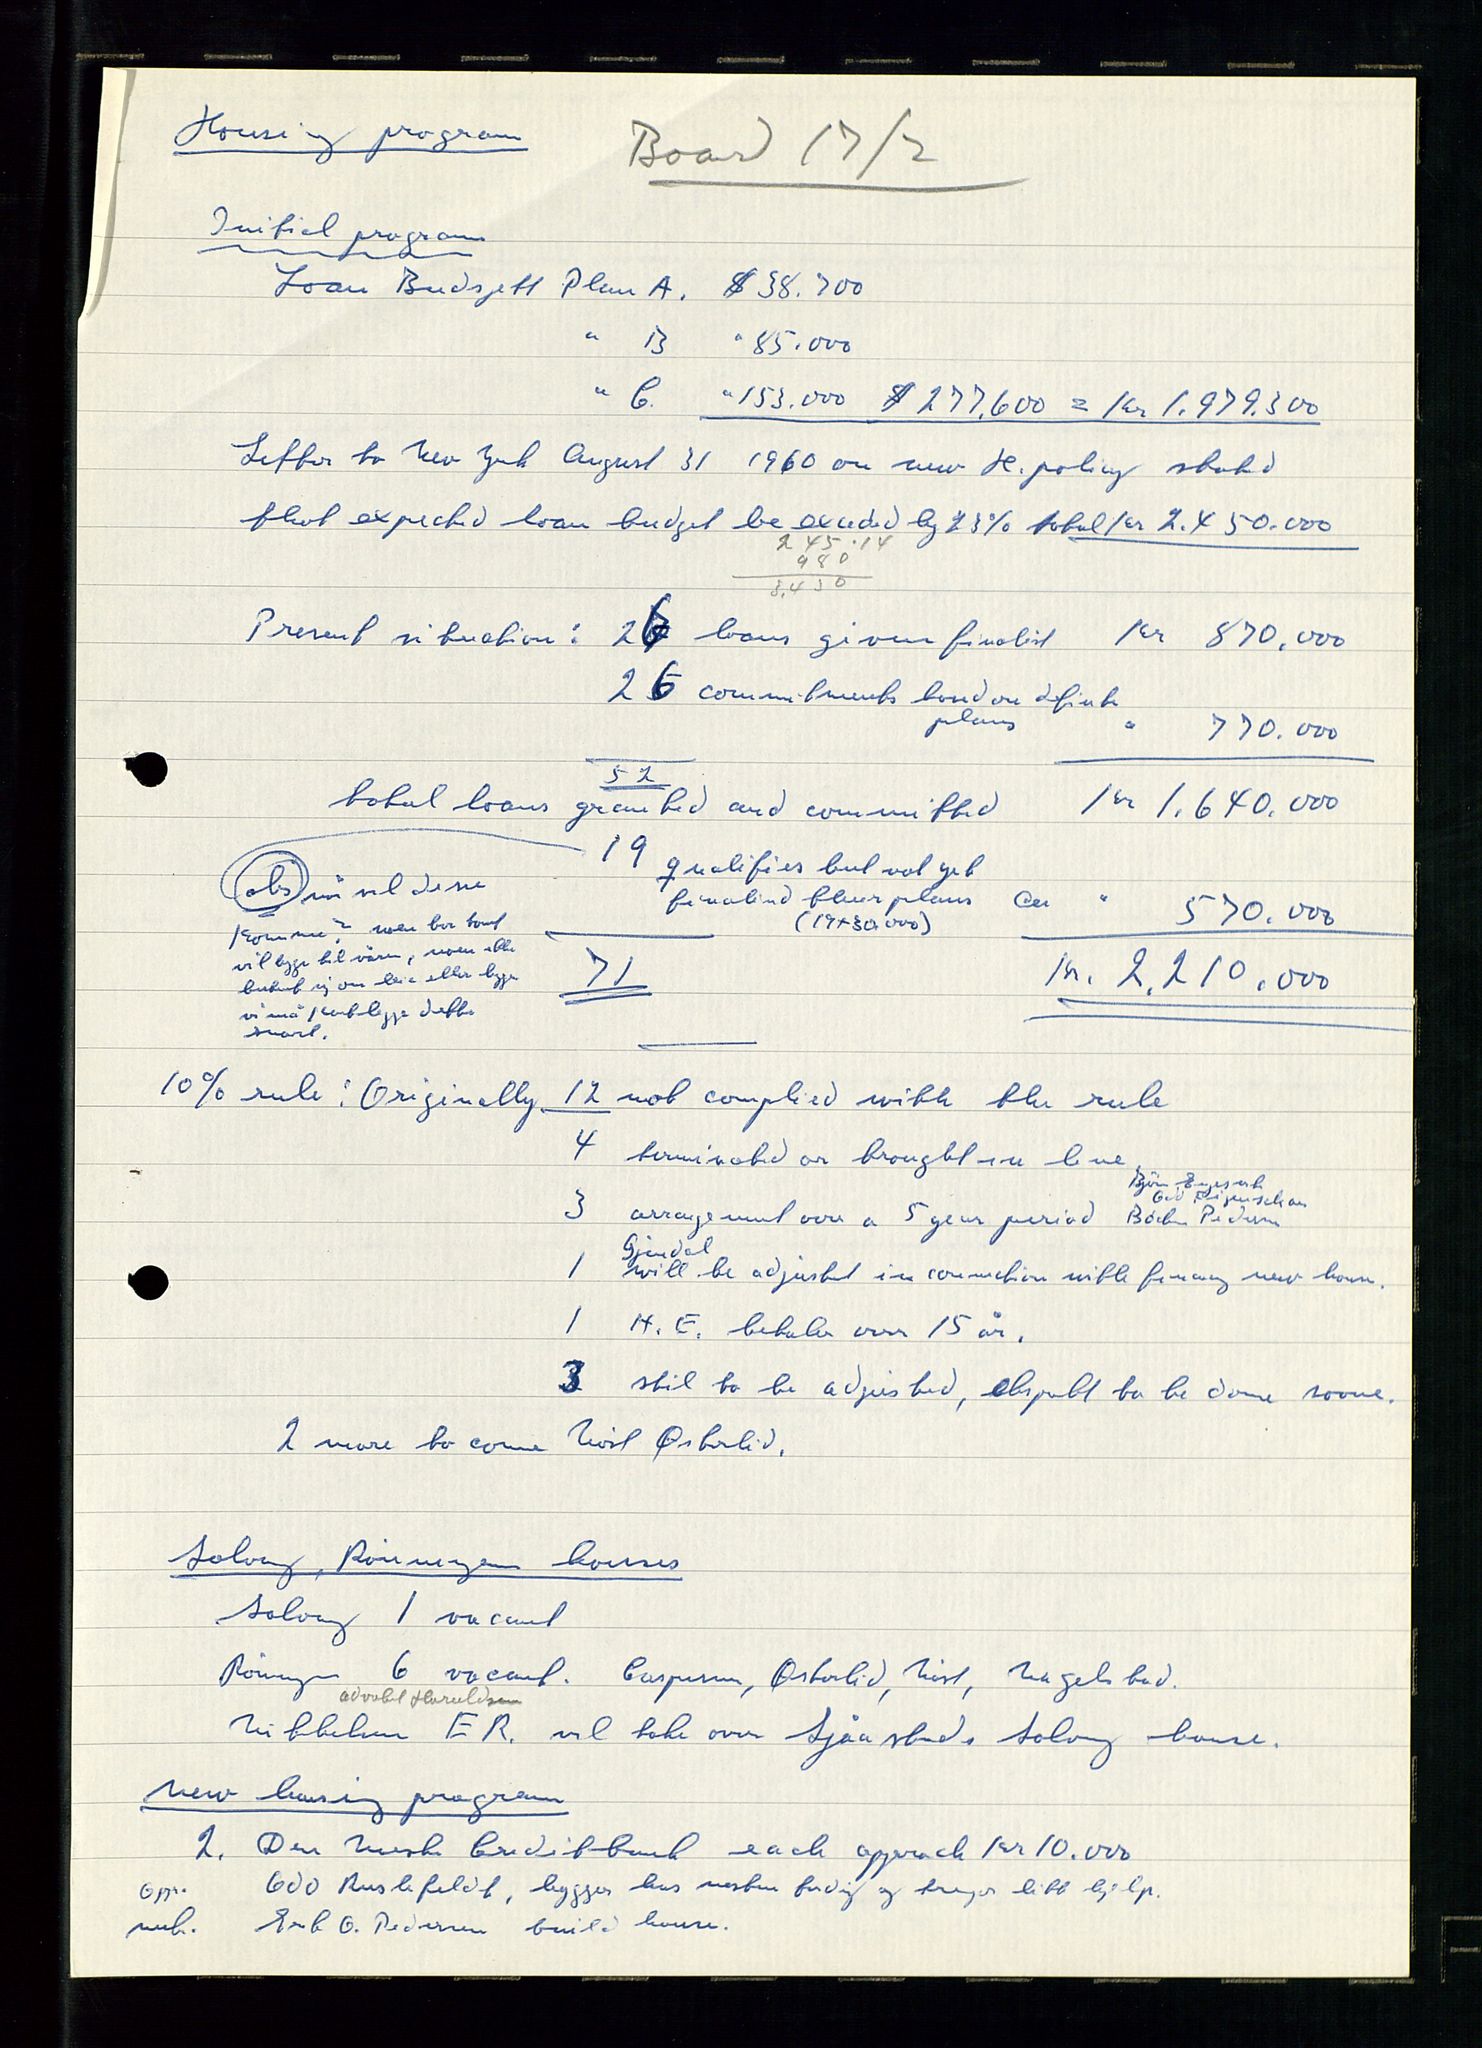 Housing program
Board 17/2
Initial program
Loan Budsjett Plan A. $ 38.700
" B " 85.000
" C. " 153.000 $ 277.600 = Kr 1.979.300
Letter to New York August 31 1960 on new H. policy stated
that expected loan budget be exceded by 23% total Kr 2.450.000
245.14
980
3.430
Present situation: 26 loans given finalist Kr 870.000
26 commitments based on definite
plans " 770.000
52
total loans granted and committed Kr 1.640.000
19 qualifies but not yet
finalized their plans Ca " 570.000
(19 × 30.000)
71 Kr. 2.210.000
obs nå vil disse
komme? noen bor bort
vil bygge til våren, noen ikke
bestemt seg om leie eller bygge
vi må kartlegge dette
snart.
10% rule: Originally 12 not complied with the rule
4 terminated or brought in line.
Björn
3 arrangement over a 5 year period Pedersen
Gjendal
1 will be adjusted in connection with financing new house.
1 H. E. betaler over 15 år.
3 stil to be adjusted, to be done soone.
2 more to come Nöst Østerlid.
Solvang, Rönningen houses
Solvang 1 vacant
Rönningen 6 vacant. Caspersen, Østerlid, Nöst, Nagelstad.
advokat Haraldsen
E R. vil take over Sjåastads Solvang house.
new housing program
2. Den Norske Creditbank each approach Kr 10.000
Opp. Odd Rustefeldt, bygger hus nesten ferdig og trenger litt hjelp.
Erik O. Pedersen build house.